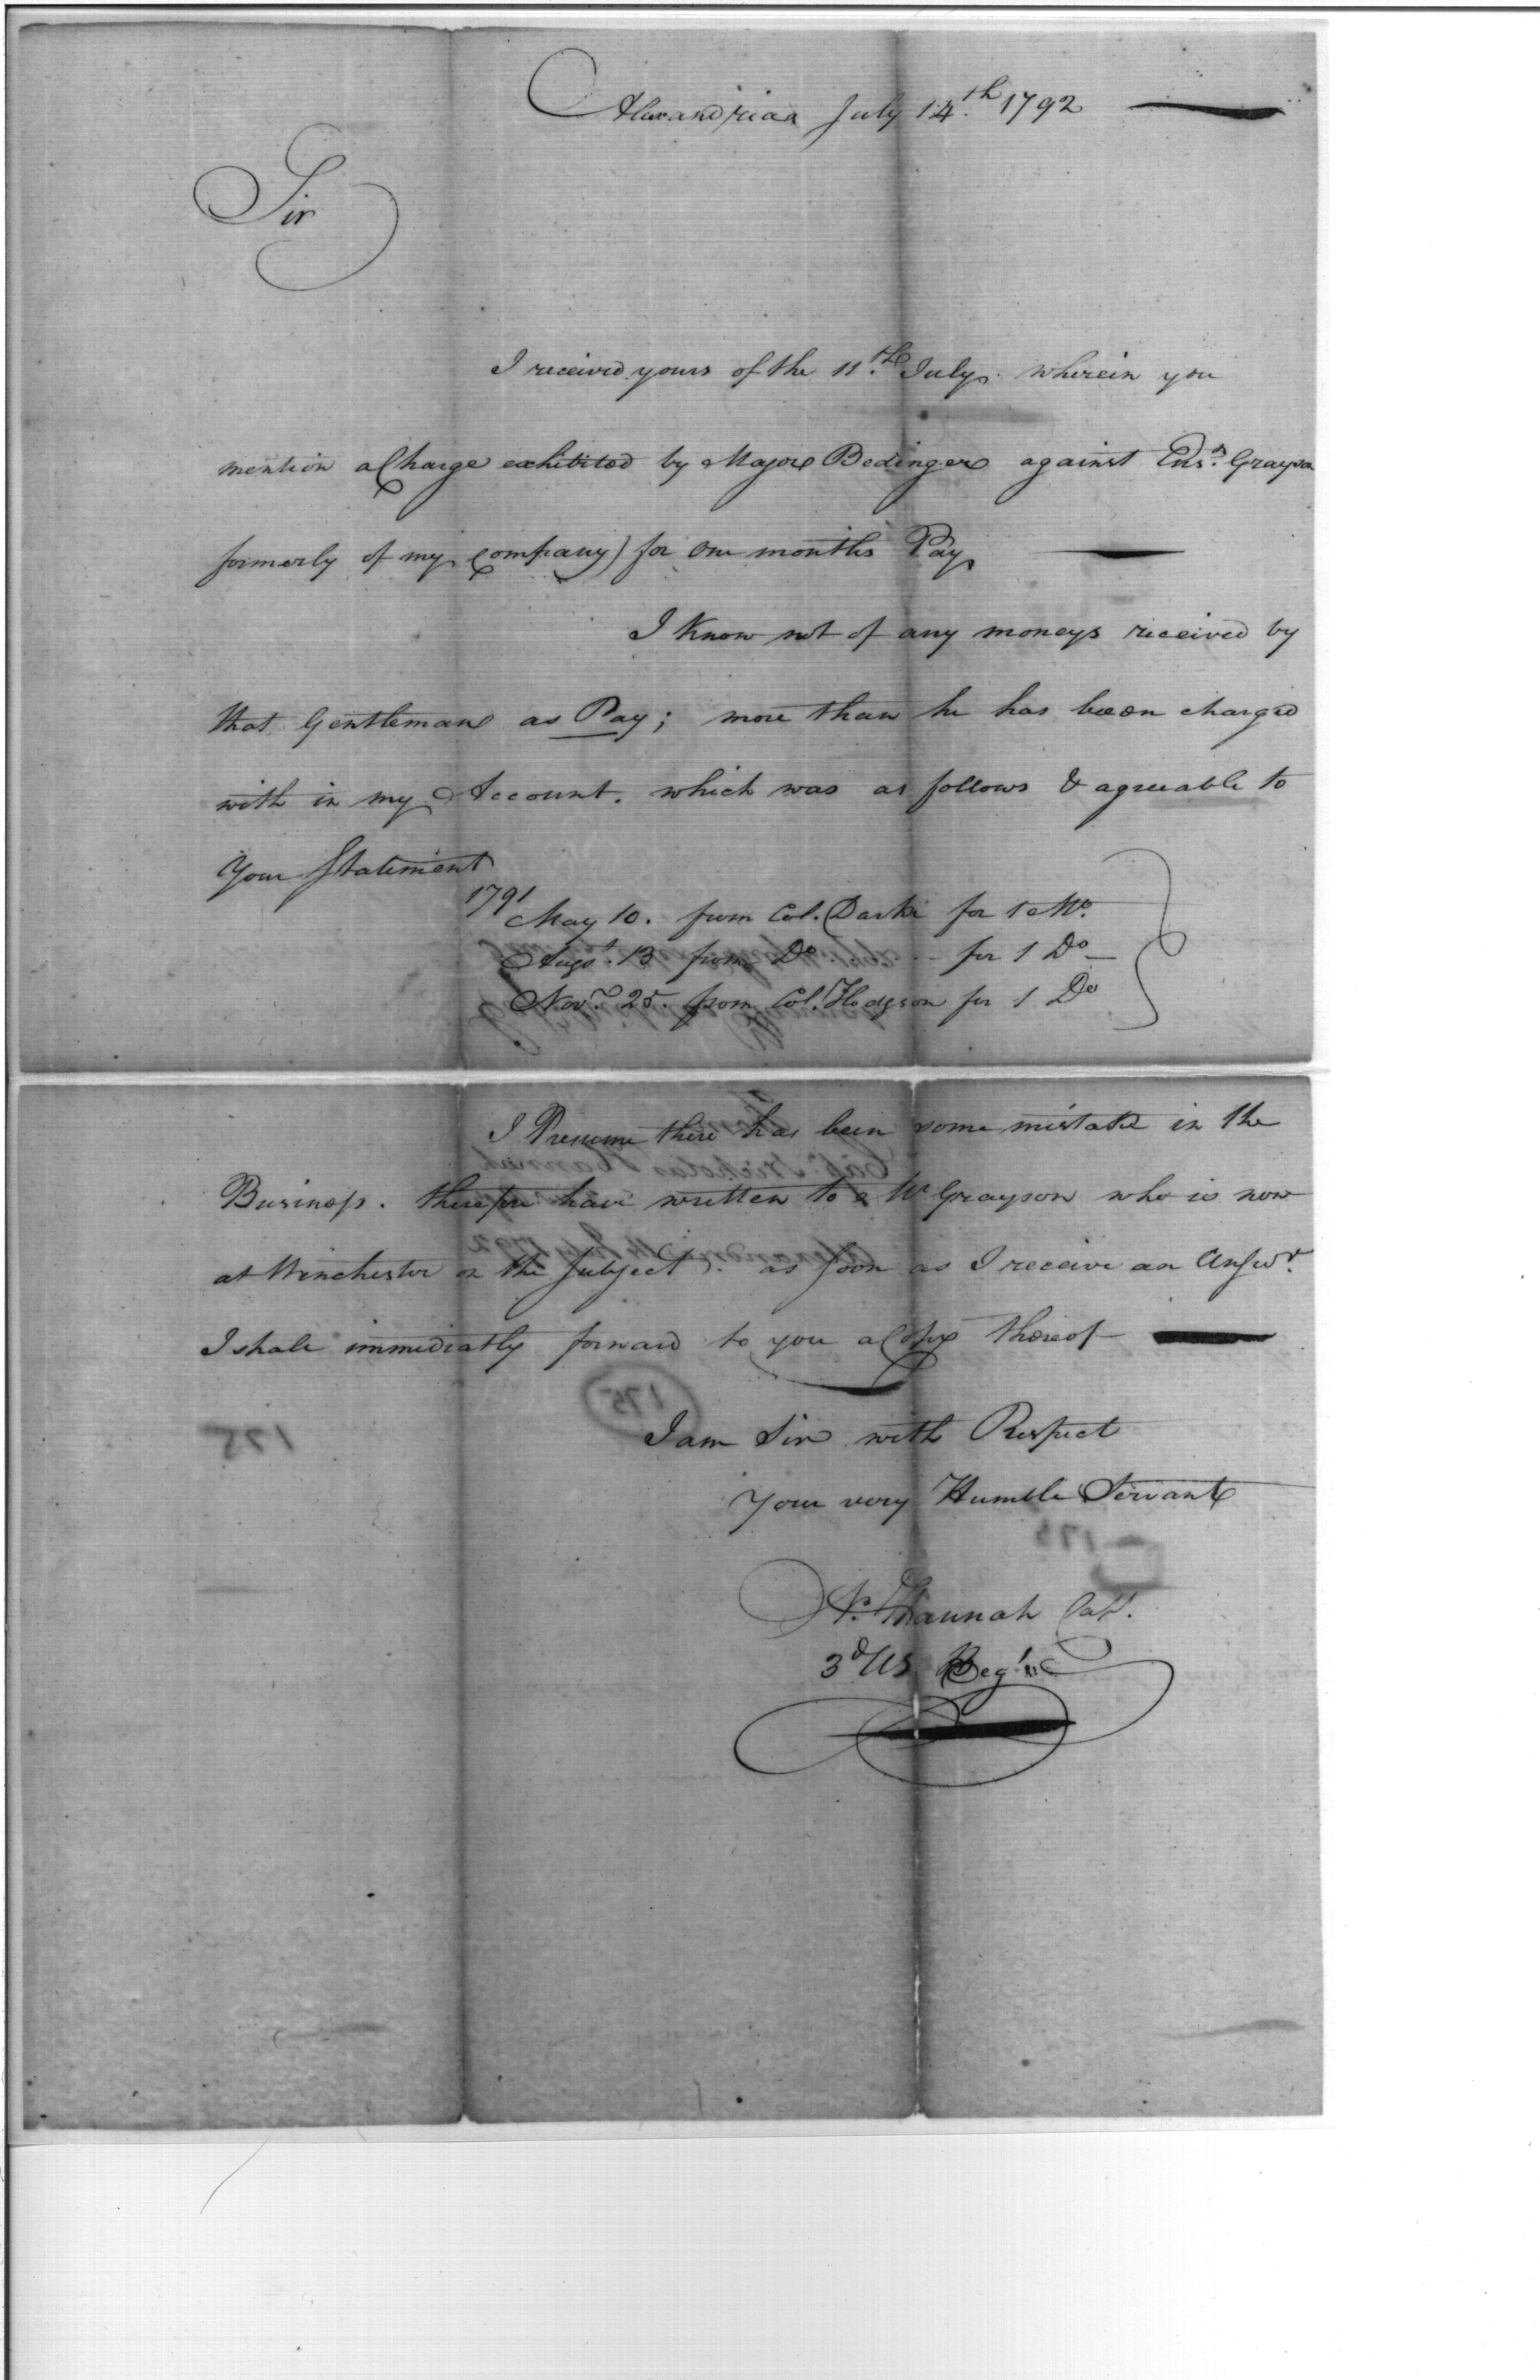 Alexandriaa July 14.th 1792
Sir
I received yours of the 11.th July. wherein you
mention a Charge exhibited by Major Bedinger against Ens.n Grayson
formerly of my Company) for One months Pay
I Know not of any moneys received by
that Gentleman as Pay; more than he has been charged
with in my Account. which was as follows & agreeable to
Your Statement
1791
May 10. from Col. Darke for 1 Mo.
Augs.t 13 from Do - for 1 Do
Nov.r 25. from Col. Hodgson for 1 Do
I Presume there has been some mistake in the
Business. therefore have written to Mr Grayson who is now
at Winchester on the Subject. as soon as I receive an Answr.
I shall immediatly forward to you a Copy thereof
175
175
I am Sir with Respect
Your very Humble Servant
175
N. Hannah Capt.
3d US. Reg't